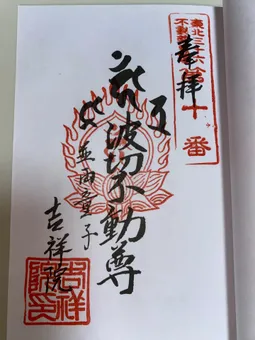 東北三十六
不動尊
十番
奉拝
波切不動尊
並両童子
吉祥院
吉祥院印